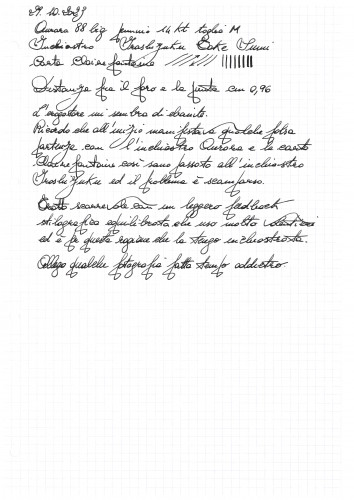 29.10.2023
Aurora 88 big pennino 14 kt taglio M
Inchiostro Iroshizuku Take Sumi
Carta Clairefontaine
Distanza fra il foro e la punta cm 0,96
L'erogatore mi sembra di ebanite.
Ricordo che all'inizio manifestava qualche falsa
partenza con l'inchiostro Aurora e la carta
Clairefontaine così sono passato all'inchiostro
Iroshizuku ed il problema è scomparso.
scorrevole con un leggero feedback
stilografica equilibrata che uso molto volentieri
ed è per questa ragione che la tengo inchiostrata.
Allego qualche fotografia fatta tempo addietro.